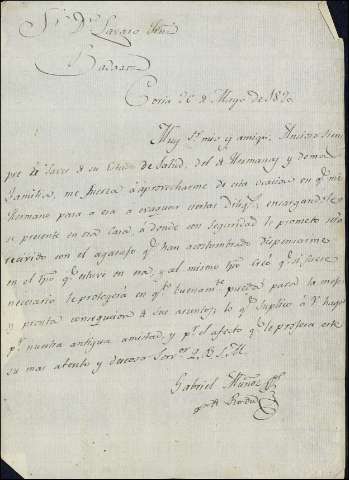 Sr. Dn. Lazaro
Badajoz
Coria 26 de Mayo de 1820
Muy Sr. mio y amigo: Ansioso siem
pre de saver de su Estado de Salud, del de Hermanas y demas
familia, me fuerza a aprovecharme de esta ocasion en que mi
Hermano para a esa a evaguar ciertas encargandole
se presente en esa Casa, a donde con seguridad le prometo será
recivido con el agasajo que han acostumbrado dispensarme
en el tpo. que estuve en esa, y al mismo tpo. creo que si fuese
necesario le protegerá en qto. buenamte. pueda para la mejor
y pronta consequcion de sus asuntos; lo qe. suplico a V. haga
pr. nuestra antigua amistad, y pr. el afecto que le profesa este
su mas atento y Servor. Q. B. S. M.
Gabriel Muñoz